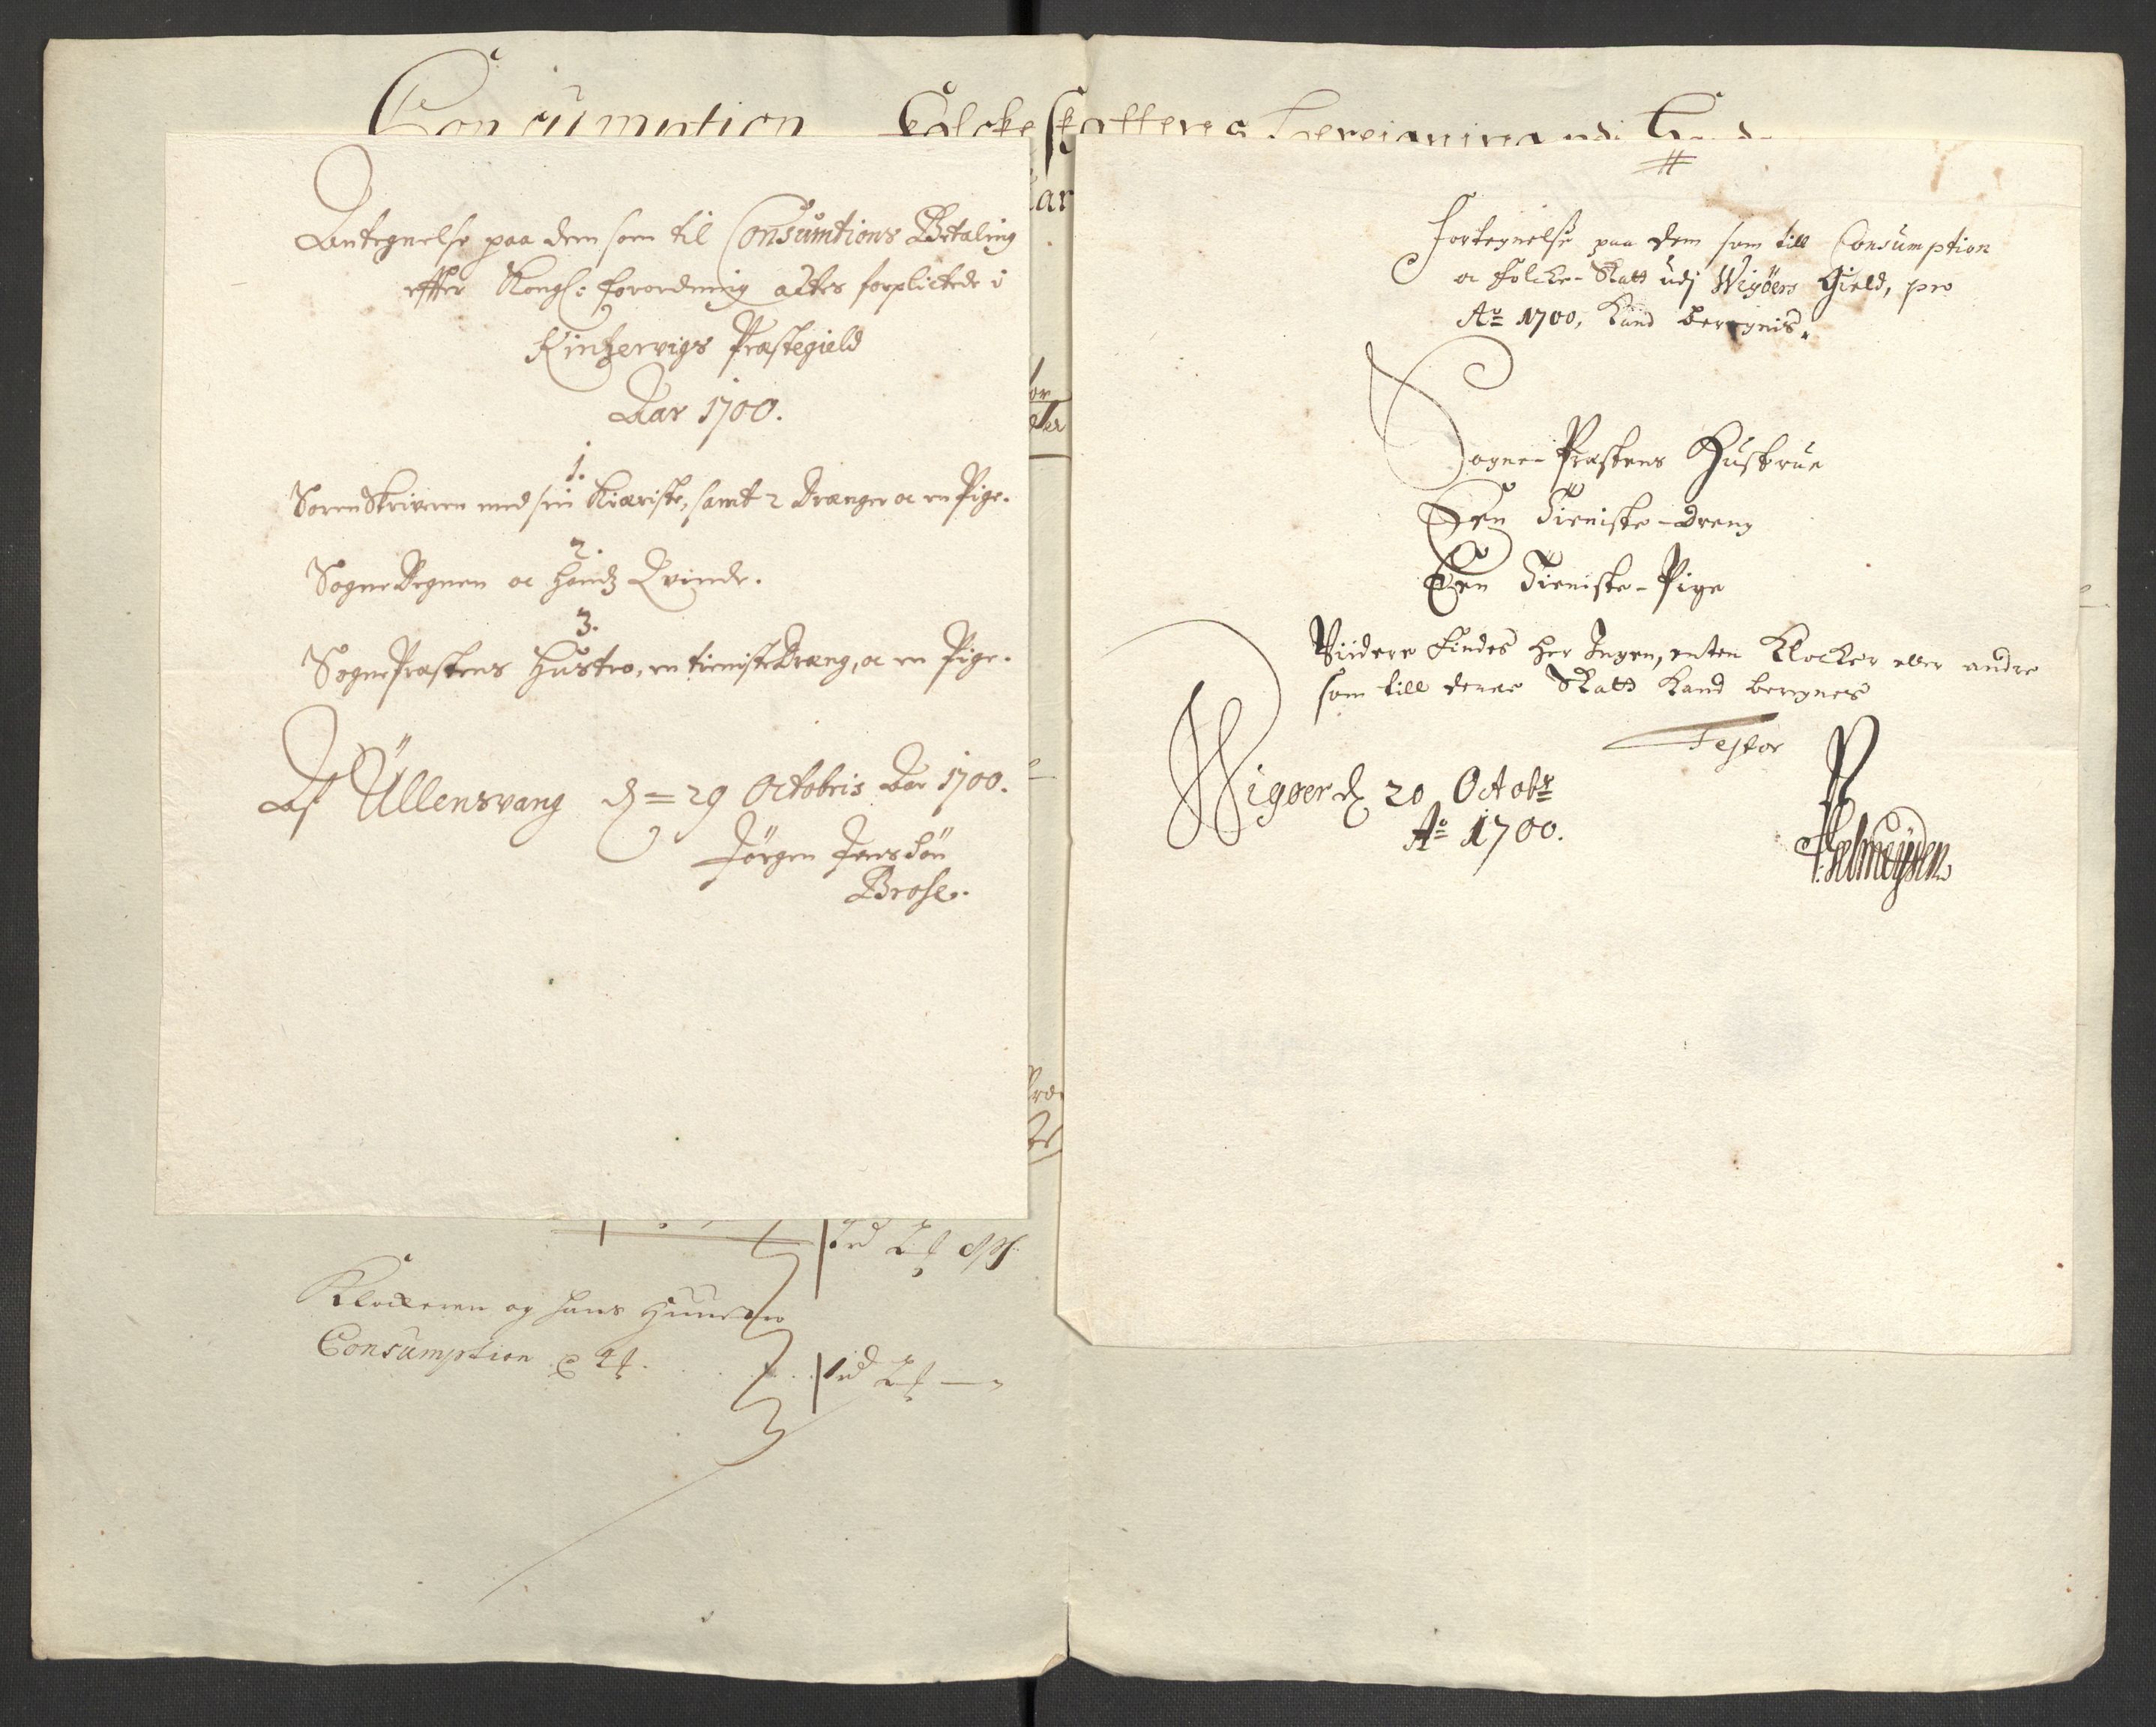 Consumption Folcke Skatters Bereigning udi
Antegnelse paa dem som til Consumtions Betaling
effter Kongl: forordning actes forplictede i
Kinzervigs Præstegield
Aar 1700.
1.
SorenSkriveren med sin Kiæriste, samt 2 Drænger oc en Pige.
2.
SogneDegnen oc handz Qvinde.
3.
SognePræstens Hustro, en tienisteDræng, oc en Pige.
Af Ullensvang d = 29 Octobris Aar 1700.
Jörgen Jenssön
Brose.
Klockeren og hans Hunstro
Consumption
#
Fortegnelse paa dem som till Consumption
oc Folcke-Skatt udj Wigöers Gield, pro
Ao 1700, kand beregnis.
Sogne-Præstens Hustrue
Een Tieniste-dreng
Een Tieniste-Pige
Viidere findes her Ingen, enten Klocker eller andre
som till denne Skatt kand beregnes
Testor
Wigøer d 20 Octobr
Ao 1700.